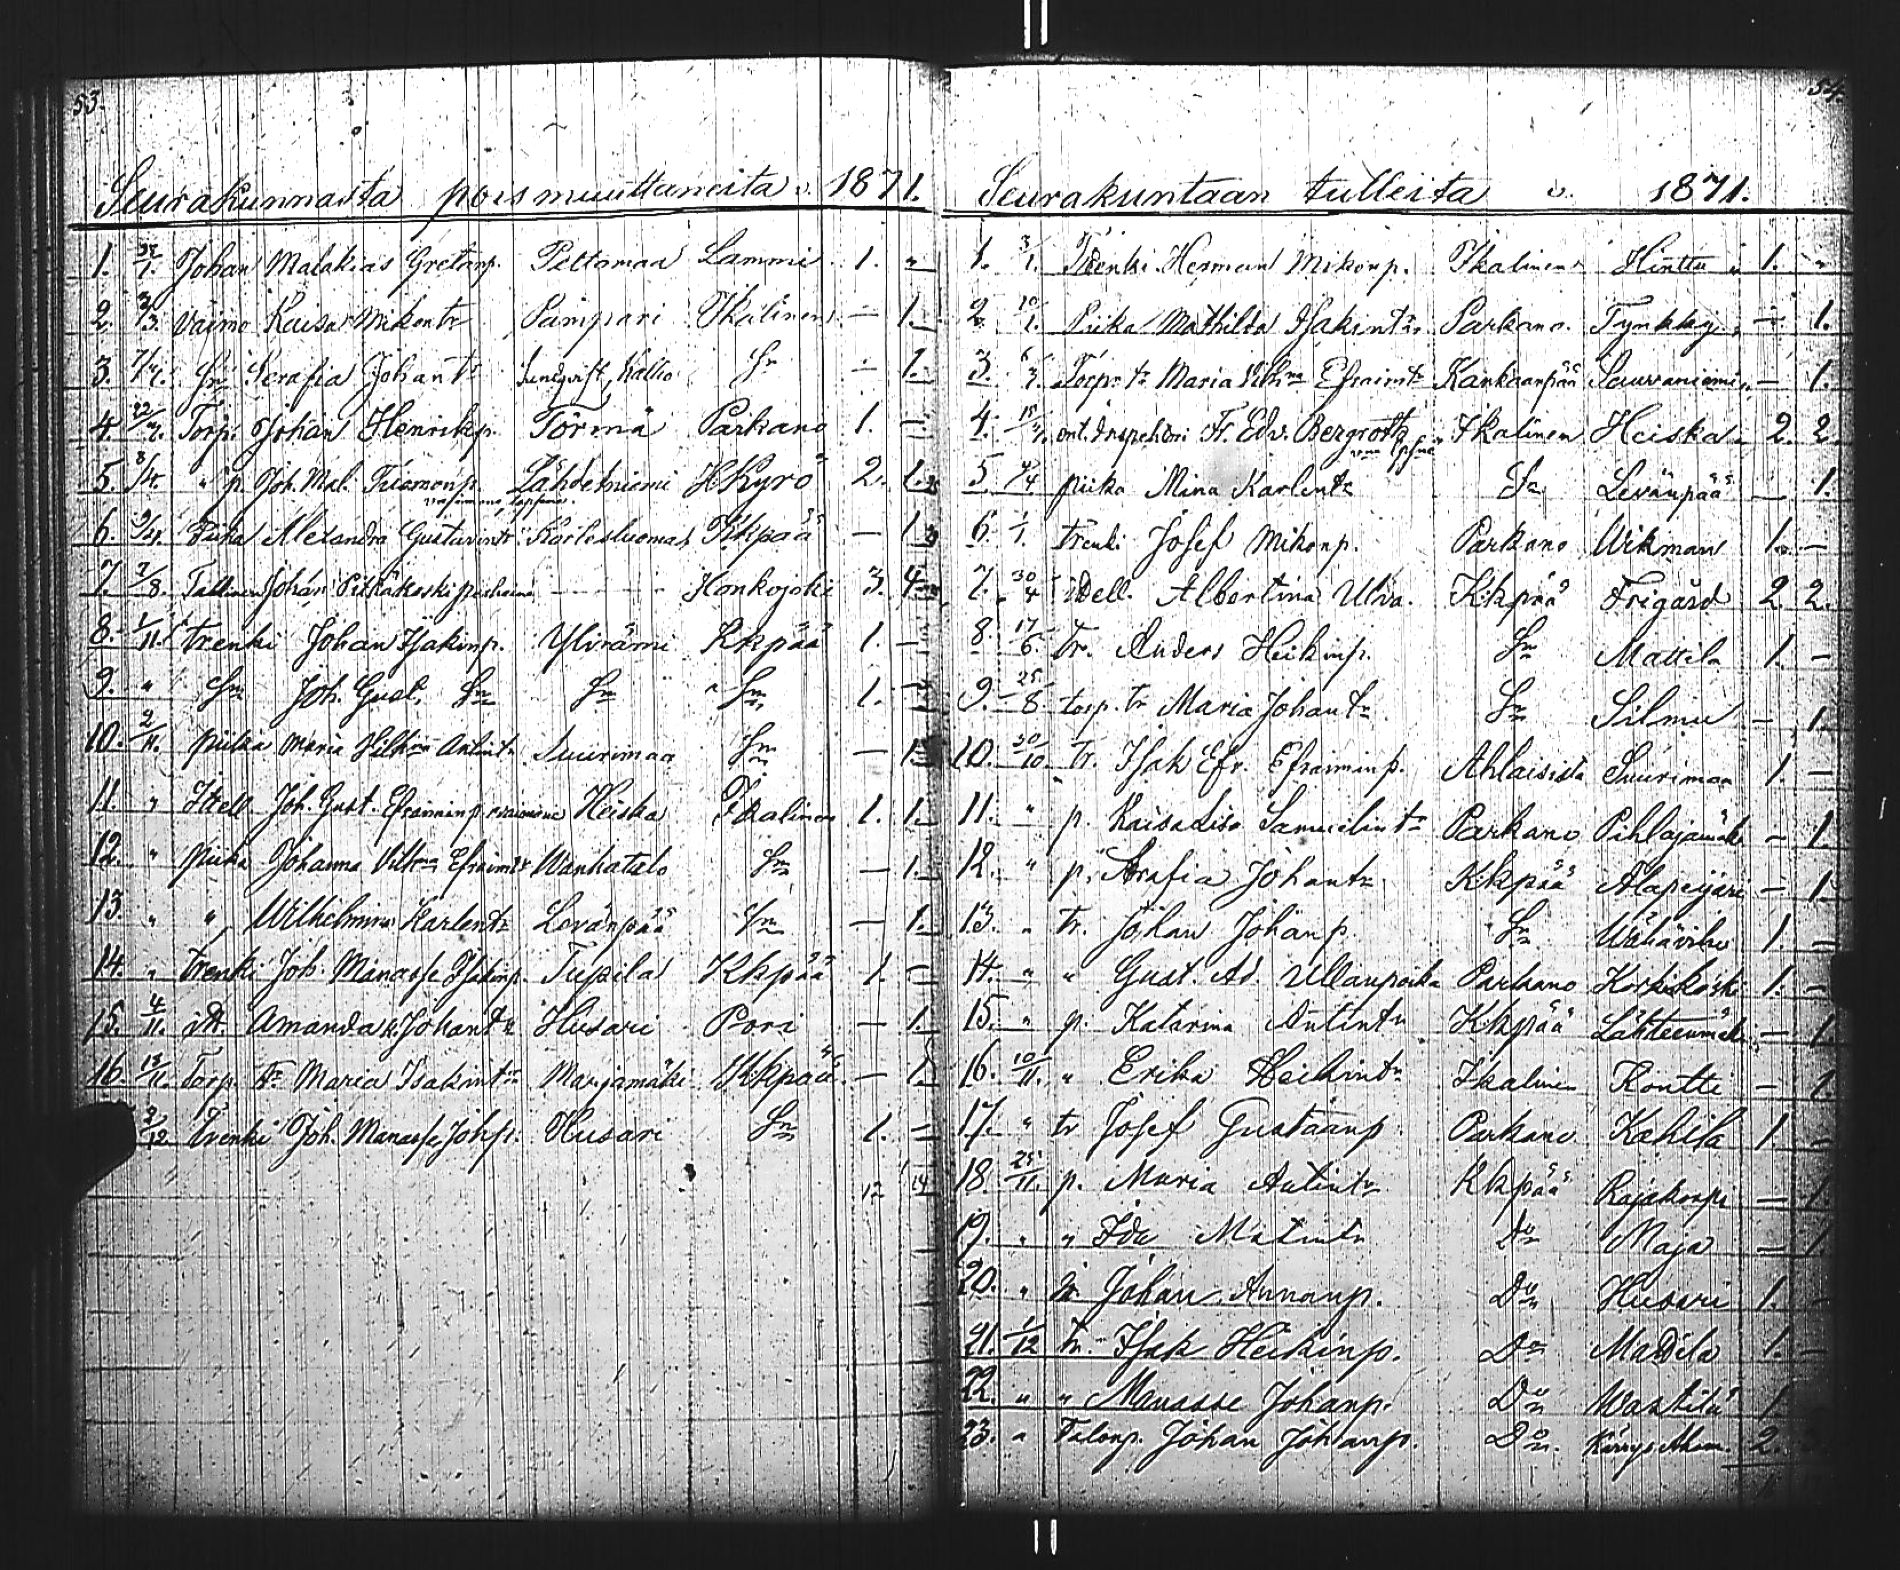 53.
Seurakunnasta poismuuttaneita v. 1871.
1. Johan Malakias Gretanp. Pettamaa Lammi 1. "
2. Vaimo Kaisa Mikontr Pämpäri Ikalinen — 1.
3. Sn Serafia Johantr Lundqvist, Kallio Sn — 1.
4. 22/3. Torp. Johan Henrikp. Törmä Parkano 1. —
5. " p. Joh. Mal. Tuomonp. Lähdeniemi HKyrö 2. 1.
vaimonsa, lapsensa.
6. Piika Alexandra Gustavintr Karlesluoma Kkpää — 1
7. 7/8. Tallinen Johan Pitkäkoski perheineen Honkojoki 3. 4.
8. 1/11. trenki Johan Isakinp. Ylirämi Kkpää 1. —
9. " Sn Joh. Gust. Sn Sn " Sn 1. —
10. 2/11. piika Maria Vilhna Antintr Suurimaa Sn — 1.
11. " Itsell Joh. Gust. Efraiminp. vaimonsa Heiska Ikalinen 1. 1.
12. " piika Johanna Vilhna Efraimtr Wanhatalo Sn — 1.
13. " " Wilhelmina Karlentr Levänpää Sn — 1.
14. " trenki Joh. Manasse Isakinp. Tupila Kkpää 1. —
15. 4/11. Amanda K. Johantr Husari Pori — 1.
16. 13/11. Torp. tr Maria Isakintr Marjamäki Kkpää — 1.
2/12 trenki Joh. Manasse Johp. Husari Sn 1. —
12 14
54.
Seurakuntaan tulleita v. 1871.
1. 3/1. Trenki Herman Mikonp. Ikalinen Hinttu 1. "
2. 10/1. Piika Mathilda Isakintr Parkano. Tynkky — 1.
3. Torp. tr Maria Vilhna Efraimtr Kankaanpää Sauvaniemi — 1.
4. ent. Inspehtori Fr. Edv. Bergroth Ikalinen Heiska 2. 2.
5. piika Mina Karlentr Sn Levänpää — 1.
6. 1/1. trenki Josef Mikonp. Parkano Wikman 1. —
7. 30/4 Albertina Ulrika Kkpää Frigård 2. 2.
8. 17/6. tr. Anders Heikinp. Sn Mattila 1. —
9. 25/8. torp. tr Maria Johantr Sn Silmu — 1.
10. 20/10. tr. Isak Efr. Efraiminp. Ahlaisista Suurimaa 1. —
11. " p. Kaisa Lisa Samuelintr Parkano Pihlajamäki — 1.
12. " p. Serafia Johantr Kkpää Alapeijari — 1.
13. " tr. Johan Johanp. Sn Wähävihu 1. —
14. " " Gust. Ad. Ullanpoika Parkano Koskikoski 1. —
15. " p. Katarina Antintr Kkpää Lähteenmäki — 1.
16. 10/11. " Erika Heikintr Ikalinen Kontti — 1.
17. " tr Josef Gustaanp. Parkano Kahila 1. —
18. 25/11. p. Maria Antintr Kkpää Rajakorpi — 1.
19. " " Ida Matintr Do Maja — 1.
20. " Johan Annanp. Do Husari 1. —
21. 1/12 tr. Isak Heikinp. Do Mattila 1. —
22. " " Manasse Johanp. Do Wastila 1
23. " Talonp. Johan Johanp. Do 2.